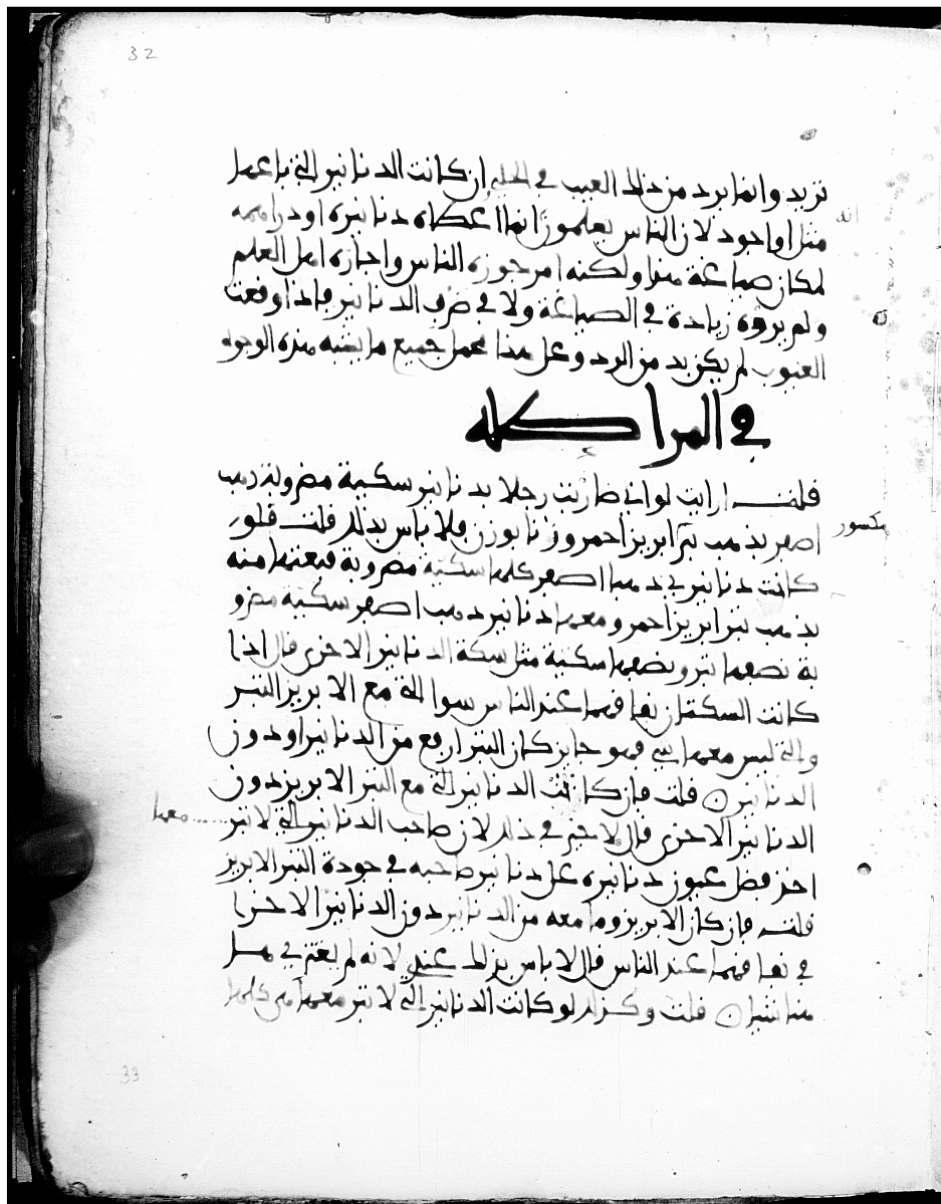 32
تريد وانما يرد من ذلك العيب في الحلي ان كانت الدنانير التي باعها
مثل او اجود لان الناس يعلمون انما اعطاه دنانيره او دراهمه
لمكان صياغة هذا ولكنه امر جوزه الناس واجازه اهل العلم
ولم يروه زيادة في الصياغة ولا في صرف الدنانير فاذا وقعت
العيوب لم يكن بد من الرد وعلى هذا محمل جميع ما يشبه هذه الوجوه
في المراطلة
قلت ارايت لو اني صارفت رجلا بدنانير سكية مضروبة ذهب
اصفر بذهب تبر ابريز احمر وزنا بوزن قال لا باس بذلك قلت فلو
مكسور
كانت دنانيري ذهبا اصفر كلها سكية مضروبة فبعتها منه
بذهب تبر ابريز احمر ومعها دنانير ذهب اصفر سكية مضرو
بة نصفها تبر ونصفها سكية مثل سكة الدنانير الاخرى قال اذا
كانت السكتان نفاقهما عند الناس سوا التي مع الابريز التبر
والتي ليس معها شي فهو جايز كان التبر ارفع من الدنانير او دون
الدنانير قلت فان كانت الدنانير التي مع التبر الابريز دون
الدنانير الاخرى قال لا خير في ذلك لان صاحب الدنانير التي لا تبر
معها
اخذ فضل عيون دنانيره على دنانير صاحبه في جودة التبر الابريز
قلت فان كان الابريز وما معه من الدنانير دون الدنانير الاخرى
في نفاقهما عند الناس قال لا باس بذلك عندي لانه لم يغتز في
هذا شيان قلت وكذلك لو كانت الدنانير التي لا تبر معها هي كلها
33